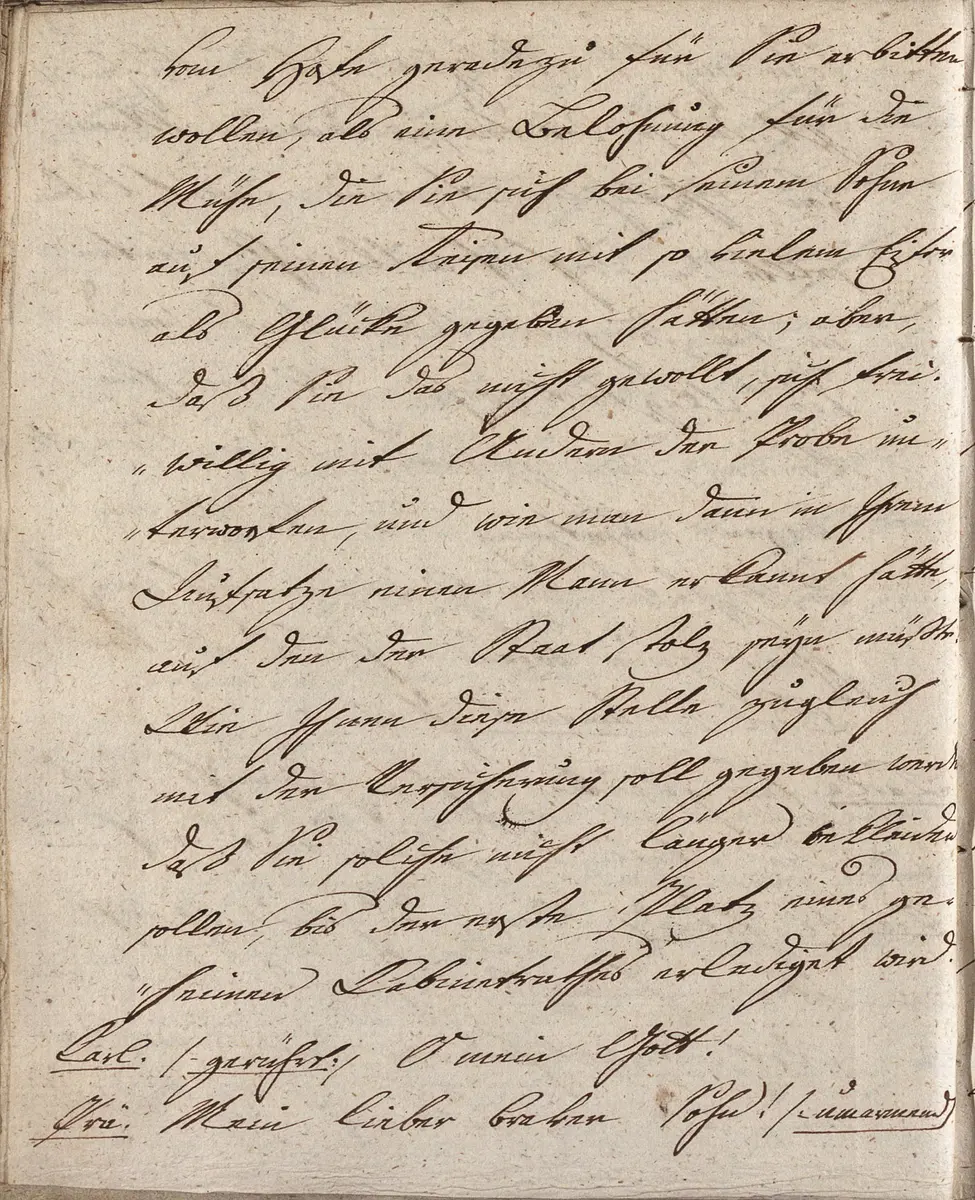 vom Hofe geradezu für Sie erbitten
wollen, als eine Belohnung für die
Mühe, die Sie sich bei seinem Sohne
auf seinen Reisen mit so vielem Eifer
als Glücke gegeben hätten; aber,
daß Sie das nicht gewollt, sich frei-
"willig mit Andern der Probe un-"
"terworfen, und wie man dann in Ihrem
Aufsatze einen Mann erkannt hätte,
auf den der Staat stolz seyn müßte.
Wie Ihnen diese Stelle zugleich
mit der Versicherung soll gegeben werde
daß Sie solche nicht länger bekleiden
sollen, bis der erste Platz eines ge-
"heimen Kabinetsrathes erlediget wird.
Carl. /:gerührt:/ O mein Gott!
Prä. Mein lieber braver Sohn! /:umarmend